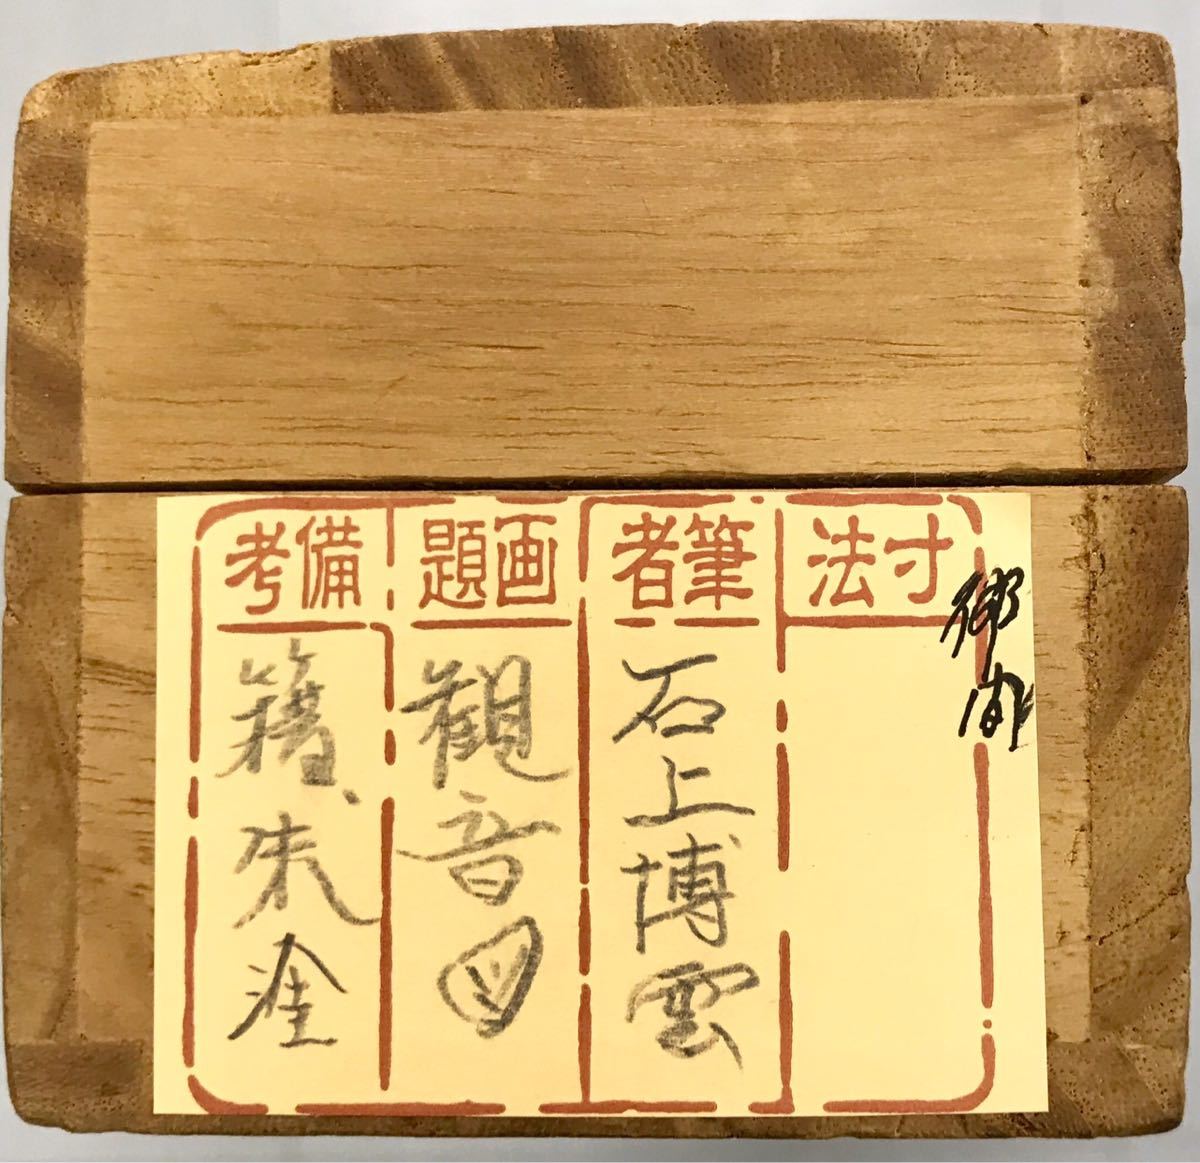 寸法
筆者
石上博雲
画題
観音図
備考
籍、朱塗